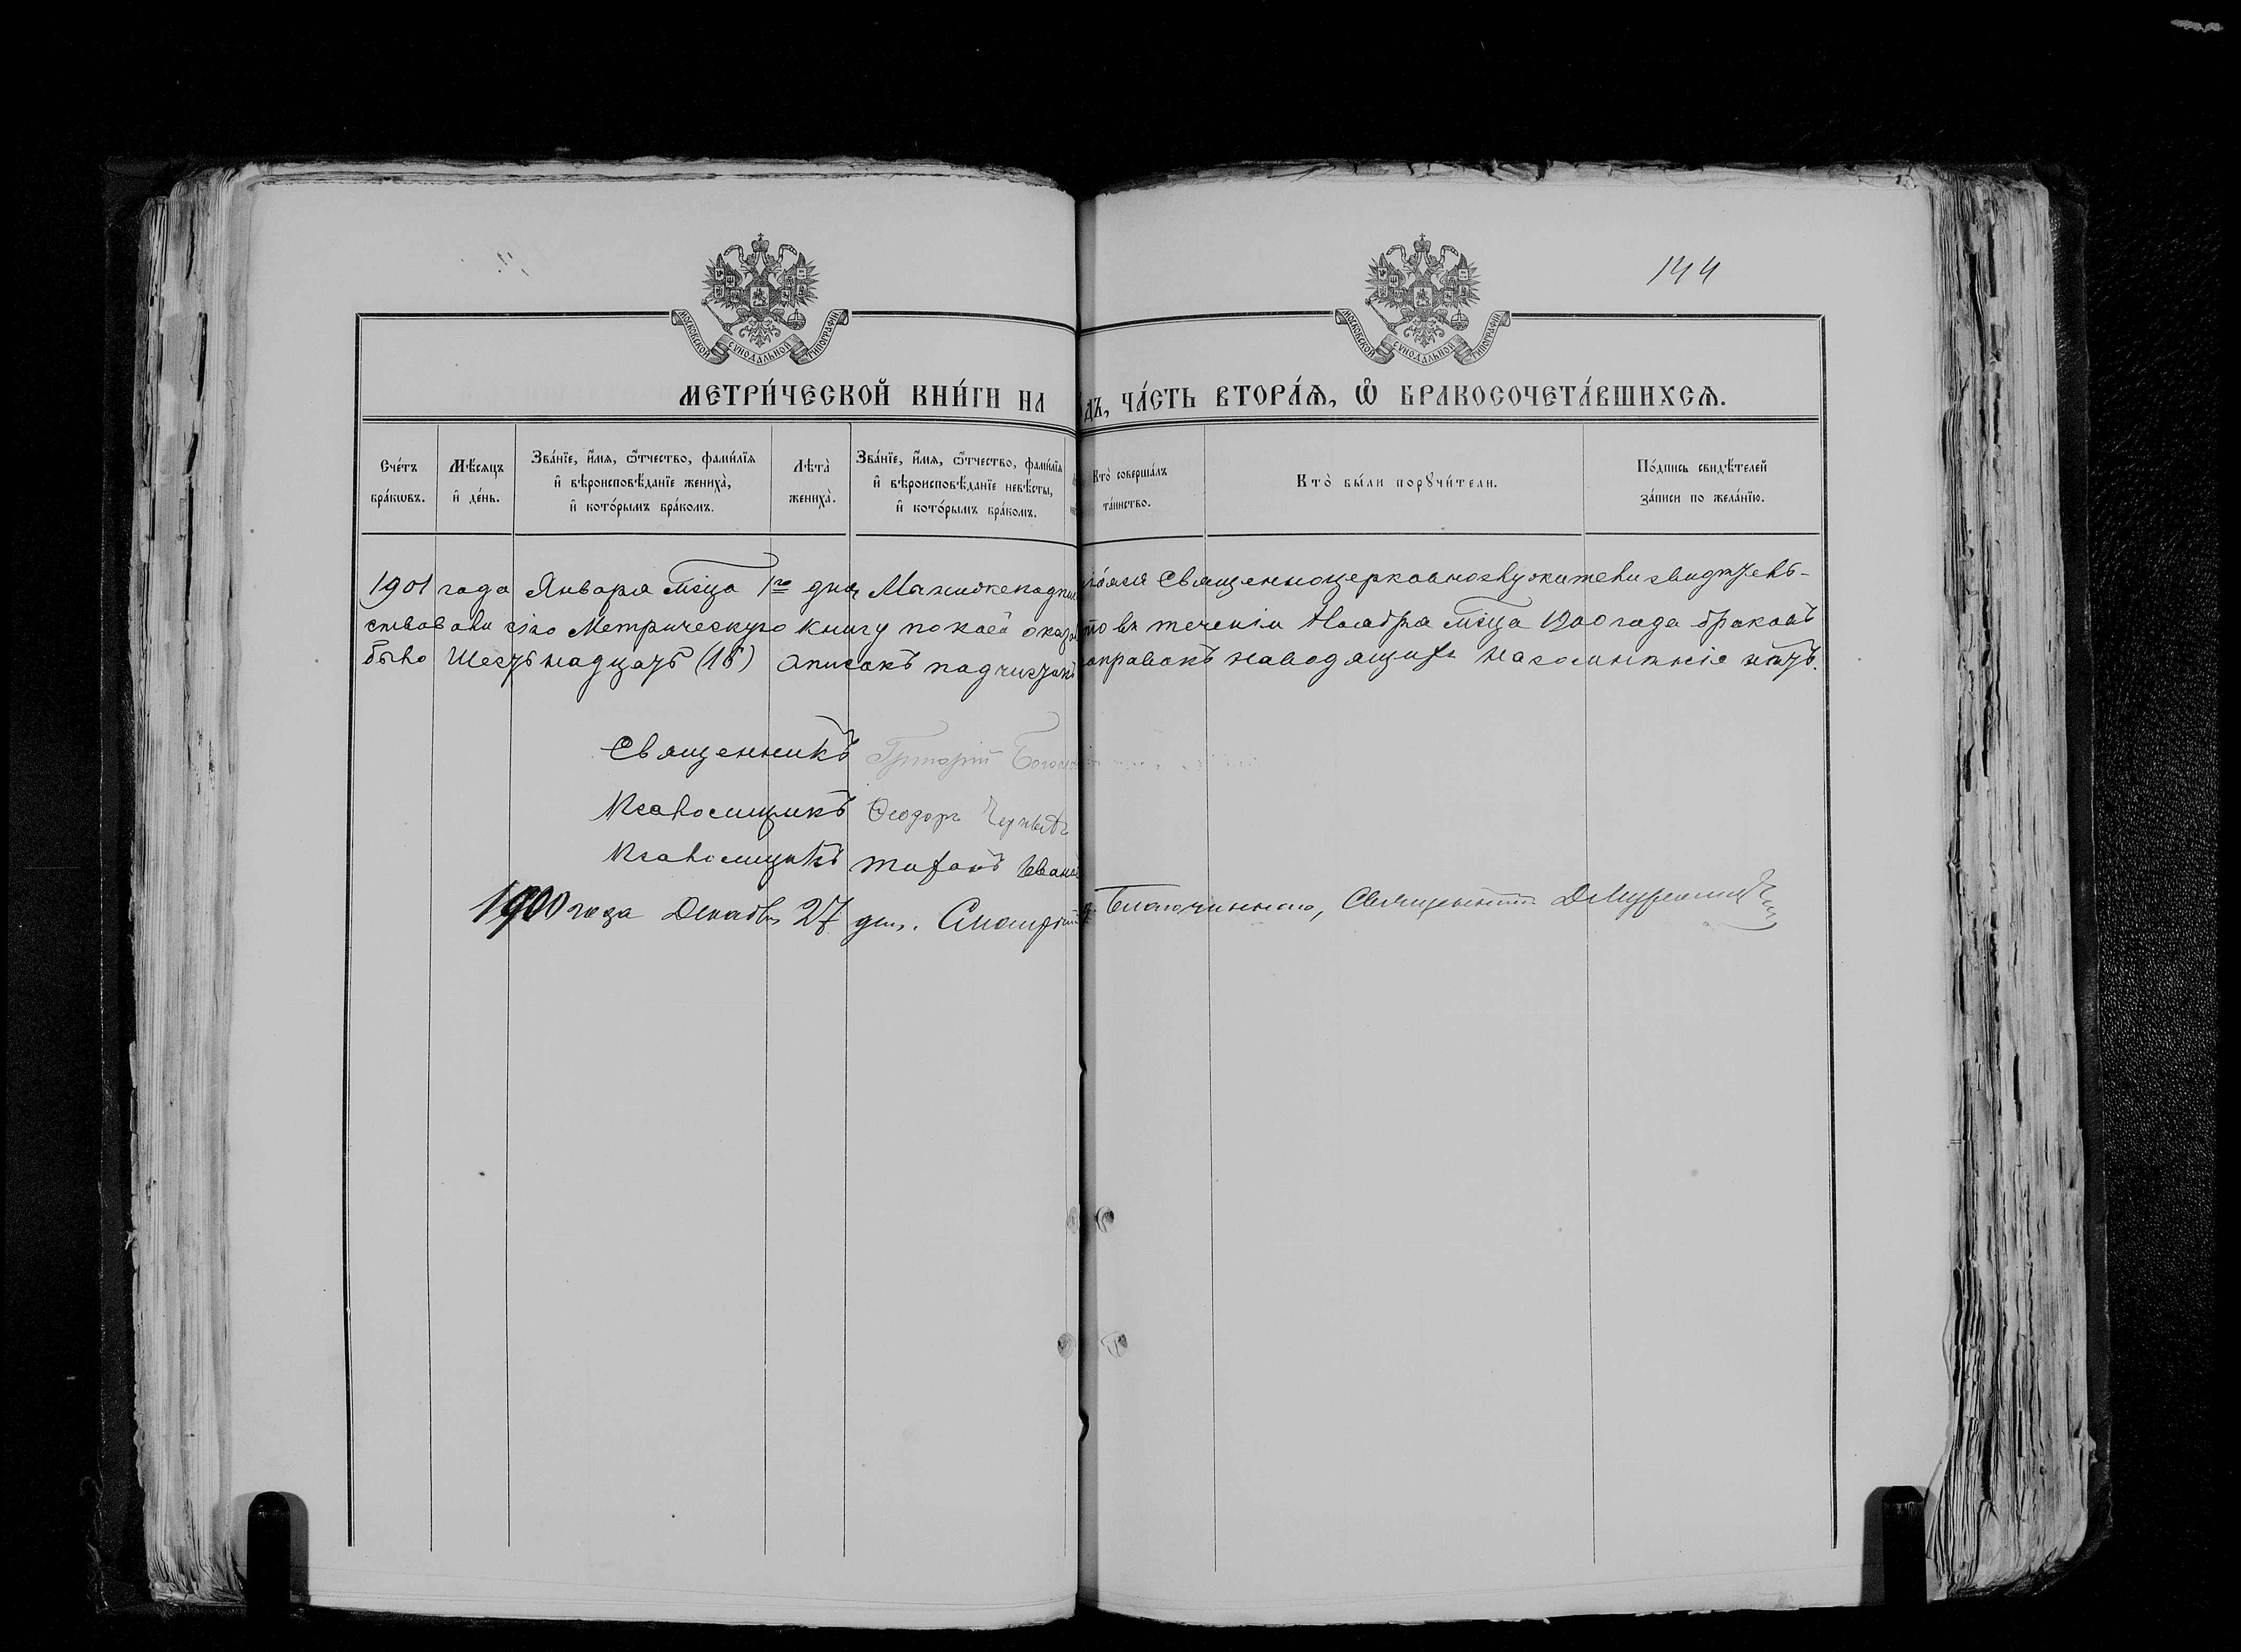 144
МОСКОВСКОЙ СѴНОДАЛЬНОЙ ТИПОГРАФІИ
МОСКОВСКОЙ СѴНОДАЛЬНОЙ ТИПОГРАФІИ
МЕТРИ́ЧЕСКОЙ КНИ́ГИ НА ДЪ, ЧА́СТЬ ВТОРА́Ѧ, Ѡ҆ БРАКОСОЧЕТА́ВШИХСѦ.
Сче́тъ бра́кѡвъ.
Мѣ́сяцъ и҆ де́нь.
Зва́нїе, и҆́мя, ѻ҆́тчество, фами́лїя и҆ вѣроисповѣ́данїе жениха̀, и҆ кото́рымъ бра́комъ.
Лѣта̀ жениха̀.
Зва́нїе, и҆́мя, ѻ҆́тчество, фами́лїя и҆ вѣроисповѣ́данїе невѣ́сты, и҆ кото́рымъ бра́комъ.
Кто̀ соверша́лъ та́инство.
Кто̀ бы́ли порꙋчи́тели.
По́дпись свидѣ́телей за́писи по жела́нїю.
1901 года Января мѣца 1го дня Мы нижеподпи Священноцерковнослужители свидѣтель-
ствовали сію Метрическую книгу по коей оказа въ теченіи Ноября мѣца 1900 года браковъ
было Шестьнадцать (16) описокъ подчистокъ поправокъ наводящихъ на сомнѣніе нѣтъ.
Священникъ Григорій
Псаломщикъ Ѳеодоръ
Псаломщикъ Тихонъ Иванов
1900 года Декабря 27 дня. Смотрѣлъ Благочиннаго, Священникъ